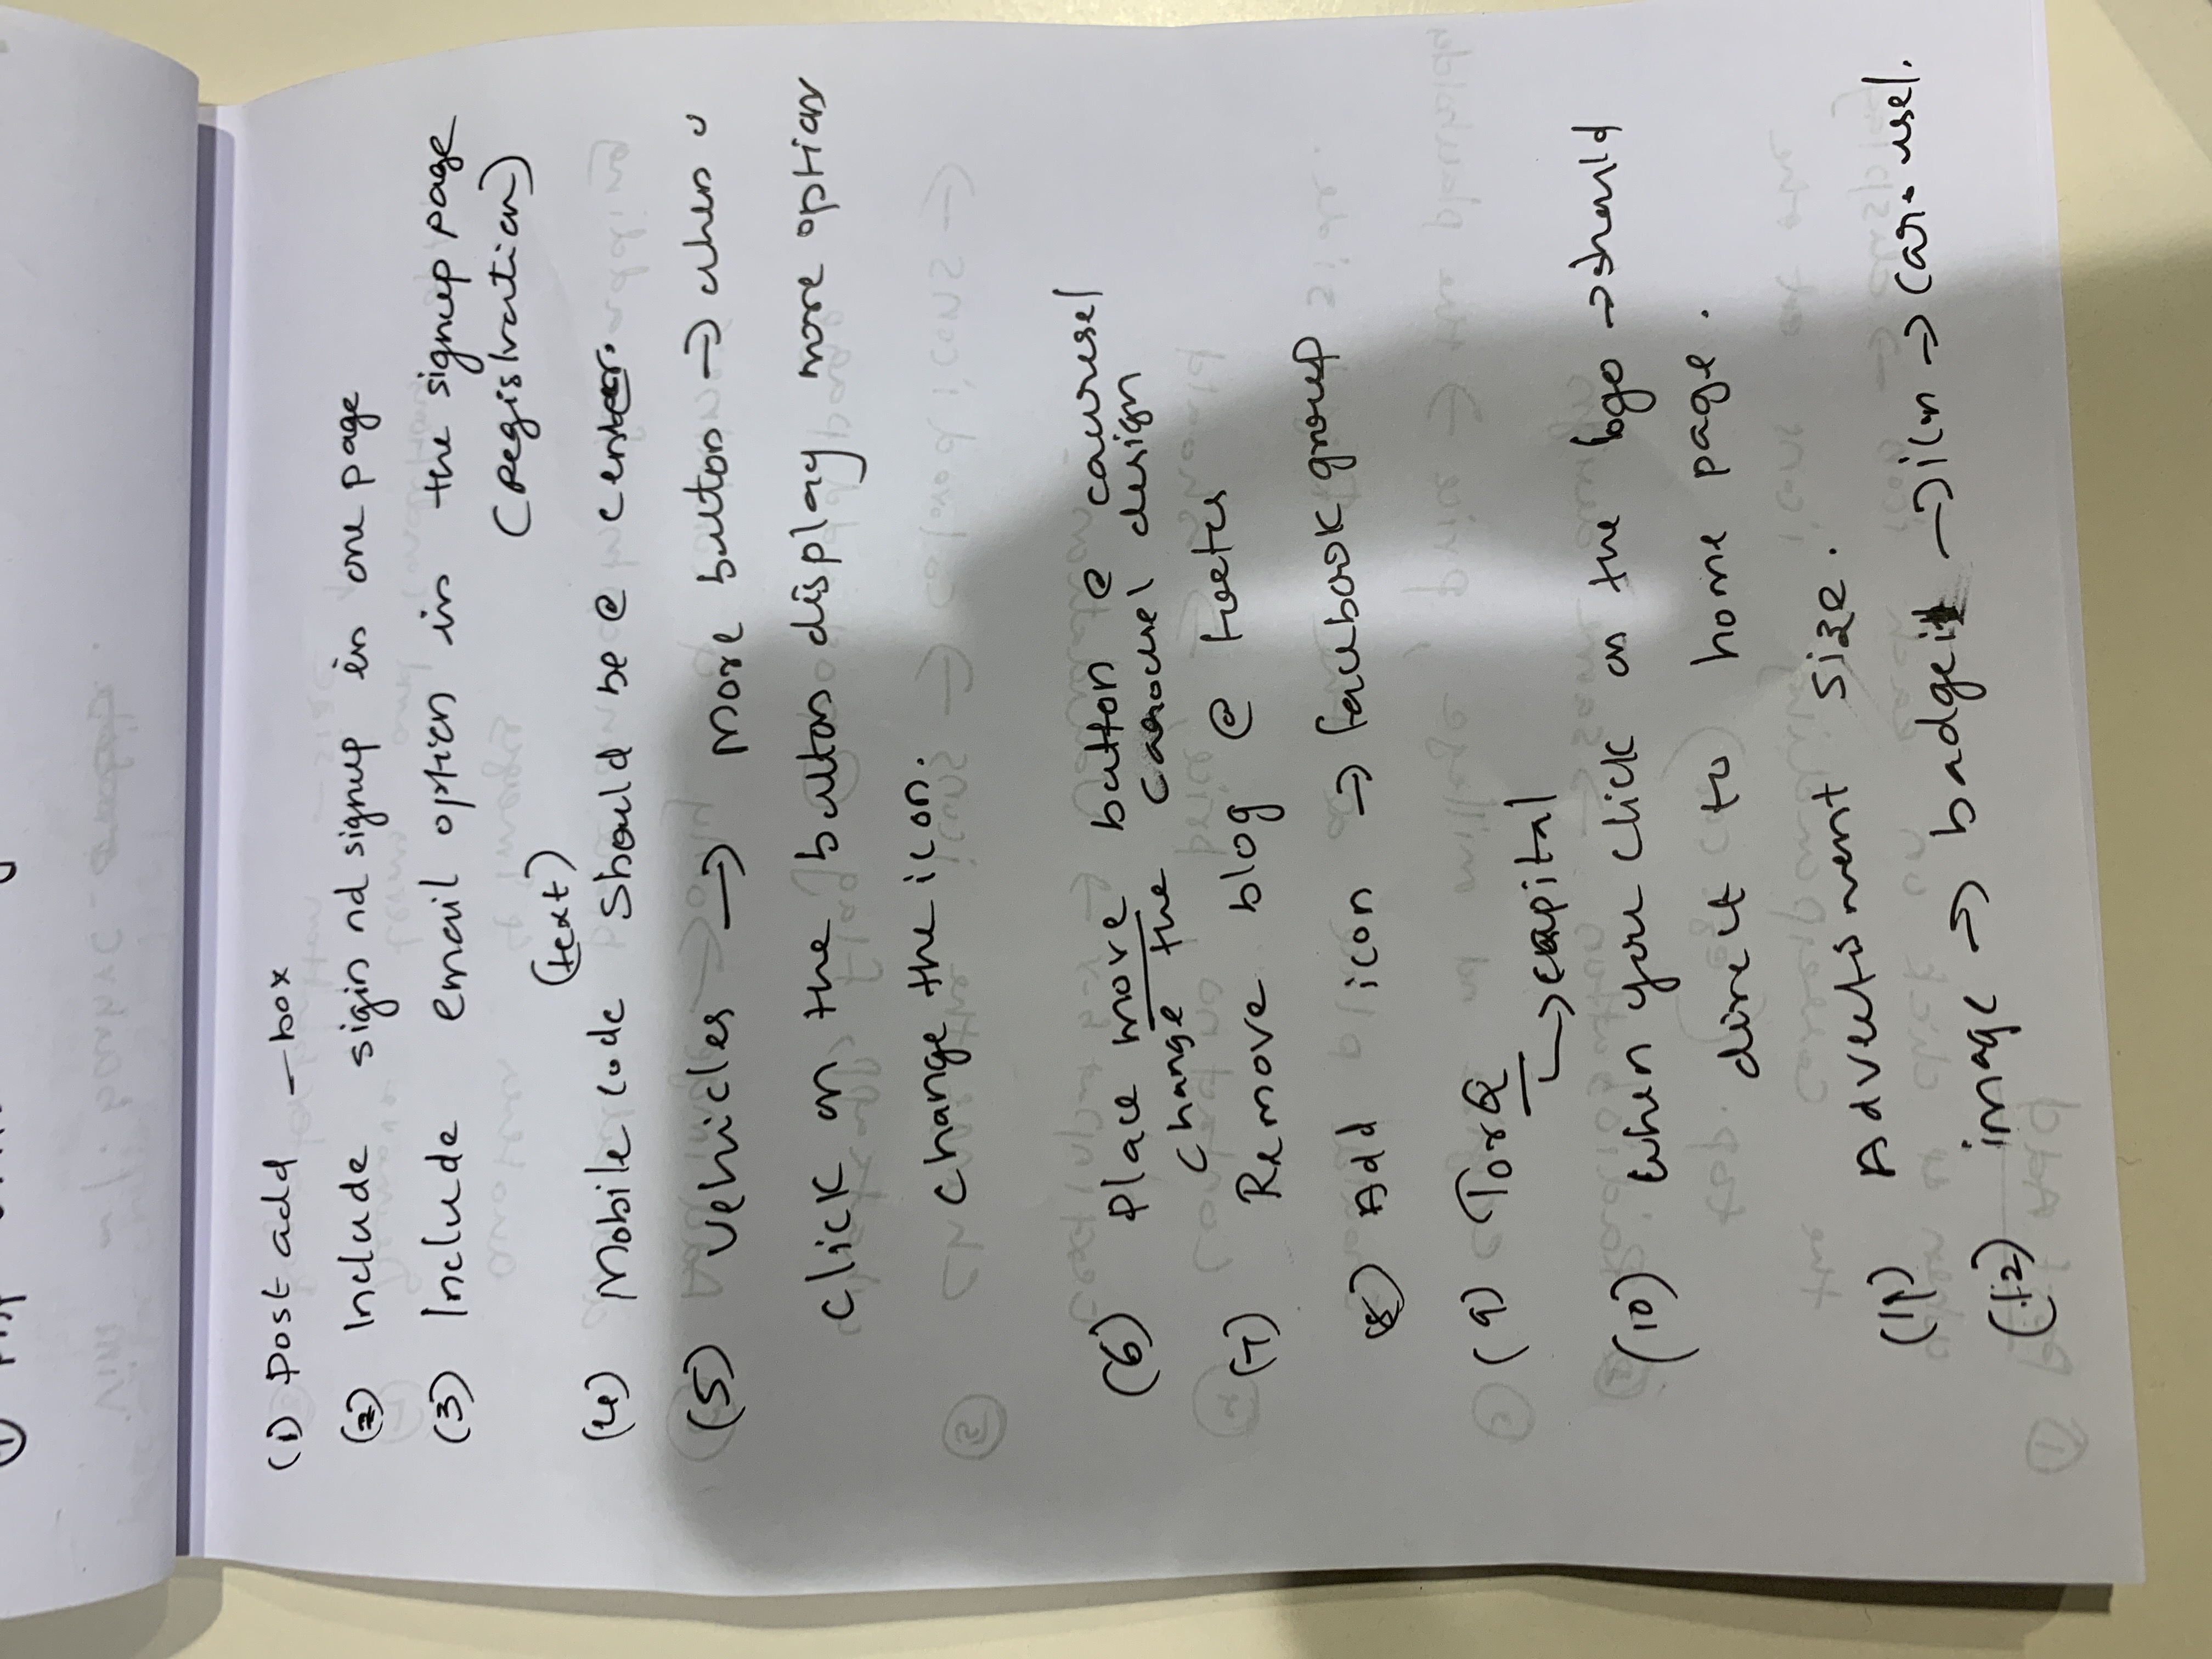 (1) Post add - box
(2) Include sigin nd signup in one page
(3) Include email option in the signup page
(Registration)
(text)
(4) Mobile code should be @ center.
(5) Vehicles → More button → when u
click on the button display more option
change the icon.
(6) Place more button @ caurusel
change the carousel design
(7) Remove blog @
(8) Add icon → facebook group
(9) TorQ
↳ capital
(10) when you click on the logo → should
direct to home page.
(11) Advertisment size.
(12) image → badge → icon → carousel.